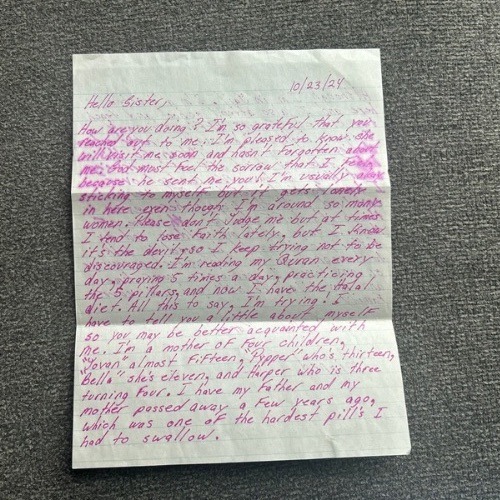 10/23/24
Hello Sister,
How are you doing? I'm so grateful that you
reached out to me. I'm pleased to know she
will visit me soon and hasn't forgotten about
me. God must feel the sorrow that I feel
because he sent me you! I'm usually
sticking to myself but it gets lonely
in here even though I'm around so many
women. Please don't judge me but at times
I tend to lose faith lately, but I know
it's the devil, so I keep trying not to be
discouraged. I'm reading my Quran every
day, praying 5 times a day, practicing
the 5 pillars, and now I have the halal
diet. All this to say, I'm trying! I
have to tell you a little about myself
so you may be better acquainted with
me. I'm a mother of four children,
"Jovan" almost fifteen, "Pypper" who's thirteen,
"Bella" she's eleven, and Harper who is three
turning four. I have my father and my
mother passed away a few years ago,
which was one of the hardest pill's I
had to swallow.